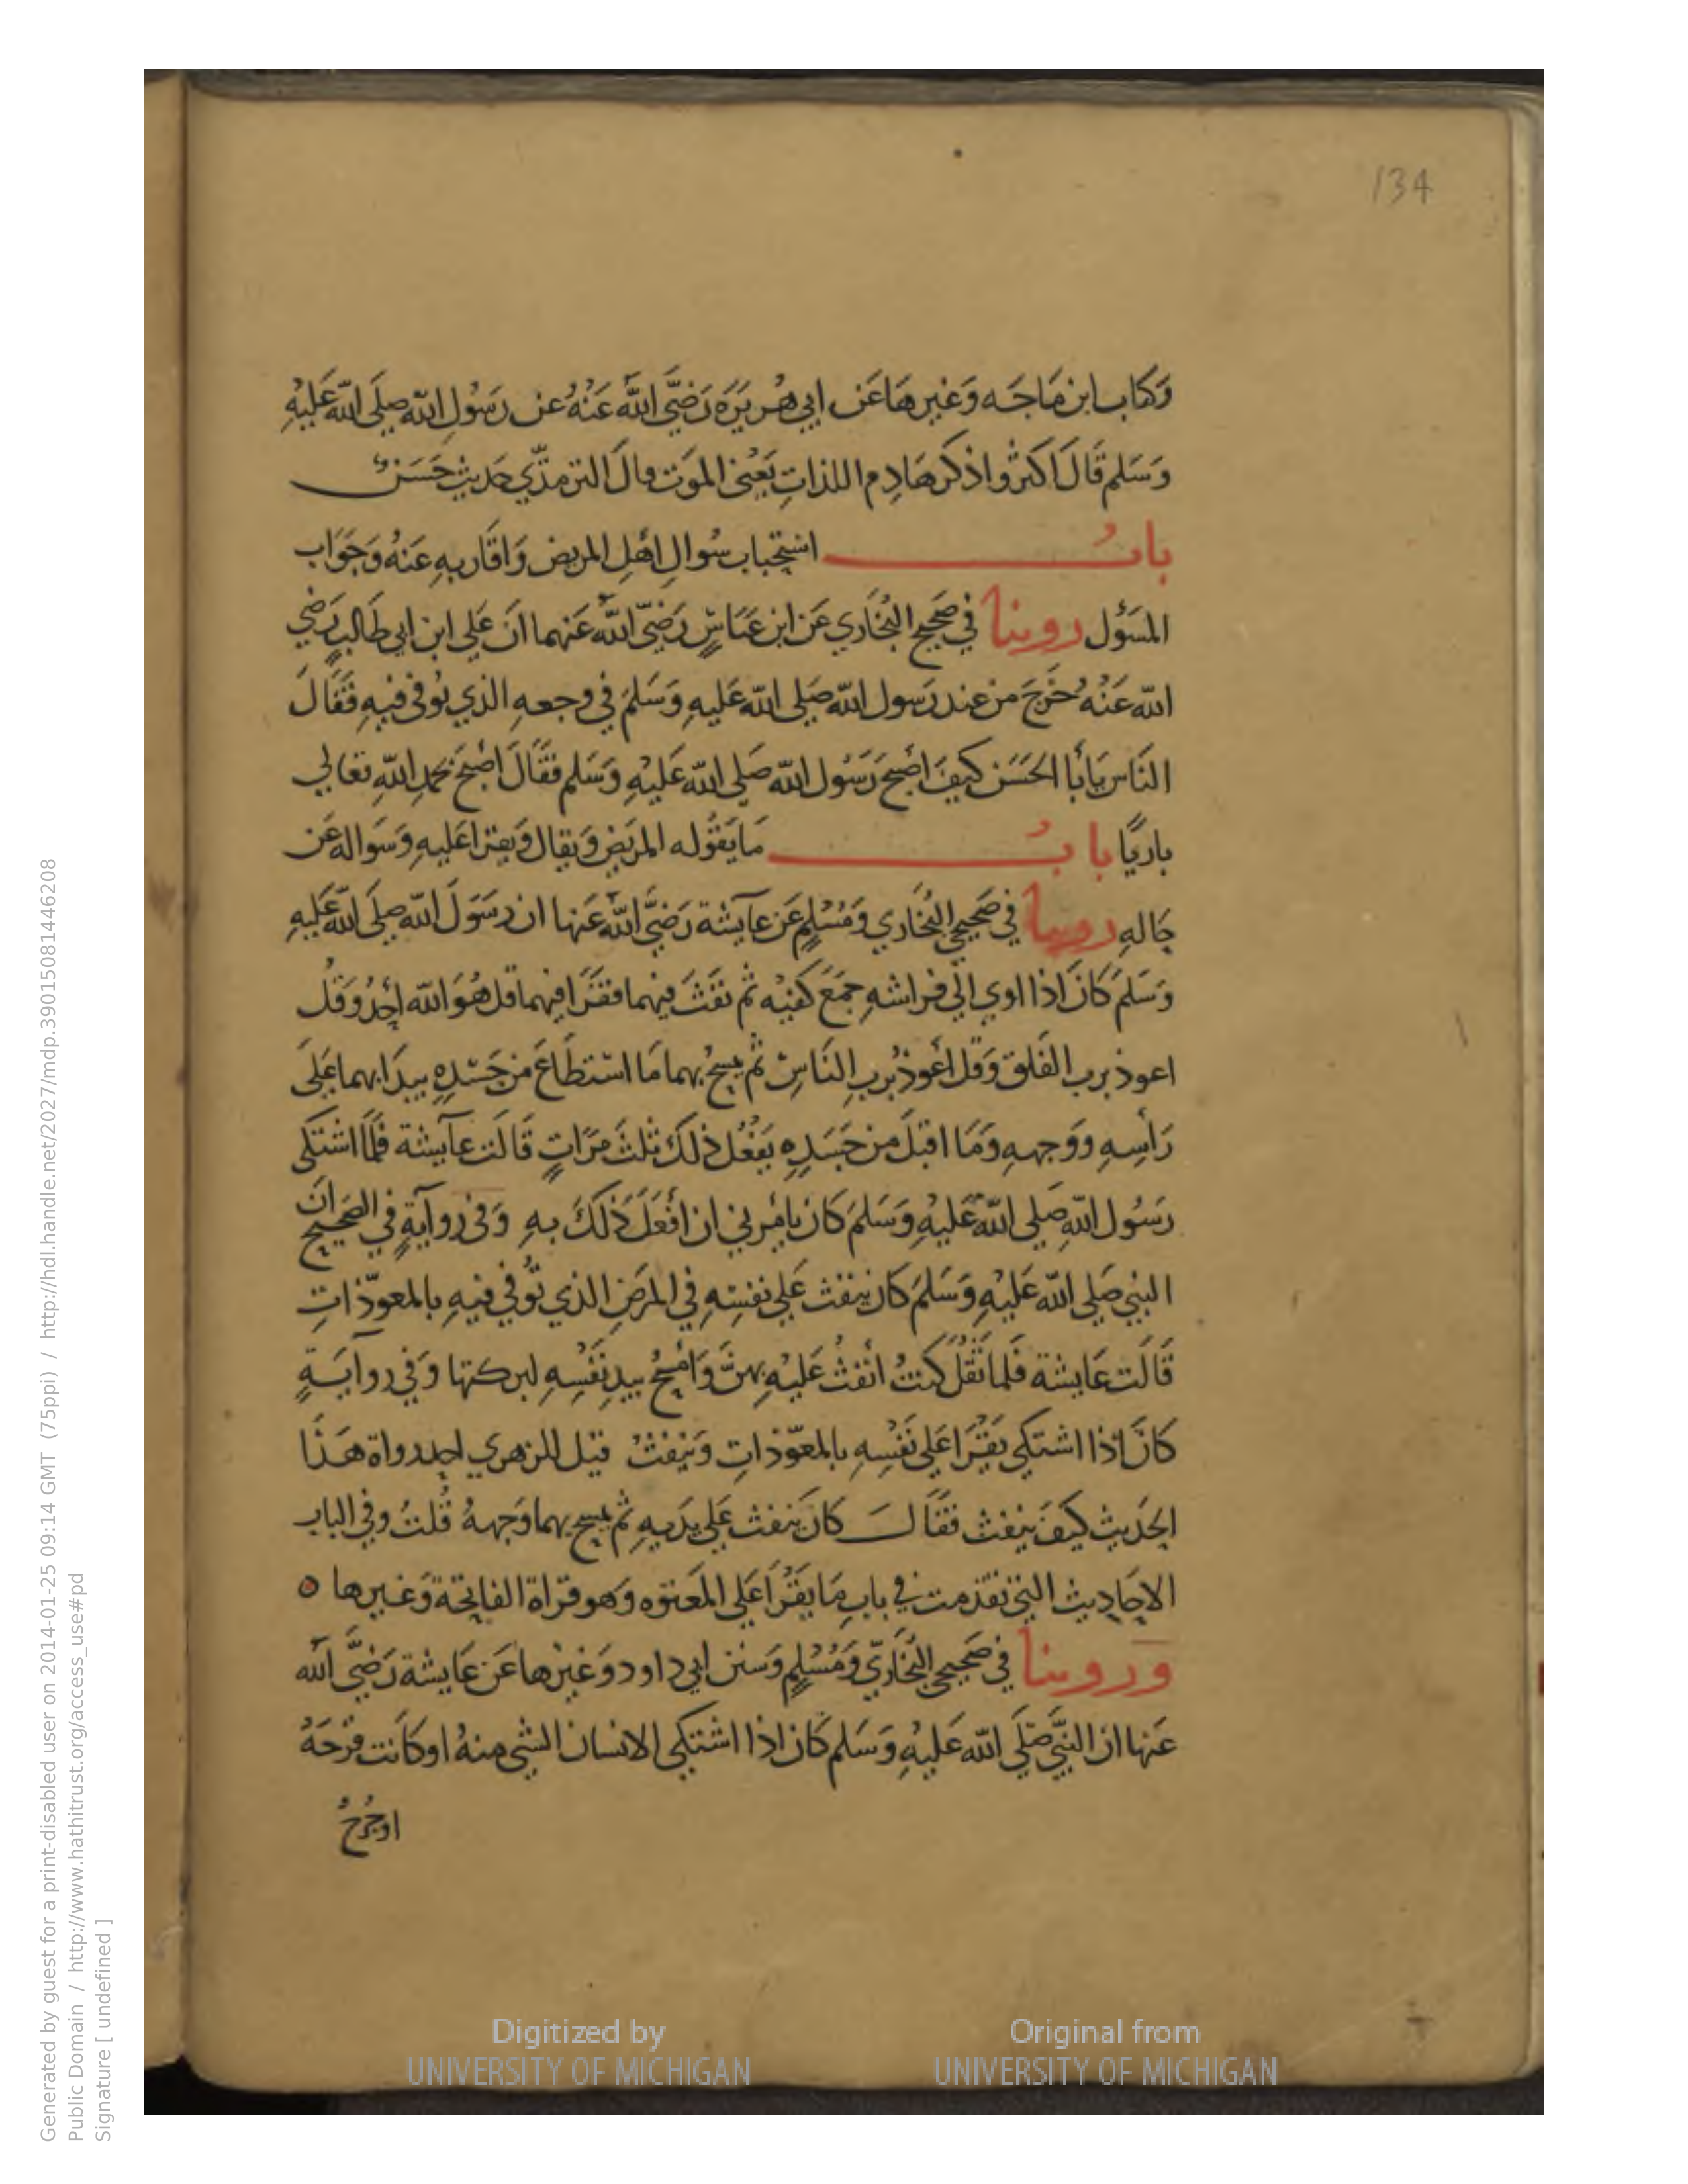 134
وَكتاب ابن مَاجَه وَغيرهَا عَن ابي هُريَرَه رَضيَّ اللهُ عَنْهُ عن رَسُولِ الله صلَى الله عَليْهِ
وَسَلم قَالَ اكثروا ذكر هَادِم اللذاتِ يَعْنى الموَت وقالَ الترمذّي حَديث حَسَنٌ
بابُ استحباب سُوالِ اهْلِ المريض وَاقَاربهِ عَنهُ وَجَوَاب
المسَؤُل روينا في صَحيح البُخَاري عَن ابن عَبّاسٍ رَضيّ اللهُ عَنهما انَ عَلي ابن ابي طَالبٍ رَضي
الله عَنْهُ خرَجَ من عند رَسول الله صَلى الله عَليهِ وَسَلمَ في وجعهِ الذي تُوفى فيهِ فَقَالَ
النَاس يَابَا الحَسَن كيفَ اصْبحَ رَسُول الله صَلى الله عَليْهِ وَسَلم فقَالَ اصْبحَ بحَمدِ اللهِ تعَالي
باريًا بابُ مَا يَقُوله المريَض وَيقال وَيقرا عَليهِ وَسَواله عَن
حَالهِ روينا في صَحيحي البُخَاري وَمُسْلمٍ عَن عآيشة رَضيَّ اللهُ عَنها ان رَسَوَلَ الله صلَى الله عَليهِ
وَسَلمَ كانَ اذا اوي الي فراشهِ جمَعَ كفَيْه ثم نفَثَ فيهما فقَرَا فيهما قل هُوَ الله أحَدٌ وَقُل
اعوذ برب الفَلق وَقل أعُوذُ بربِ النَاسِ ثم يمسحُ بهما مَا استطَاعَ من جَسَدِهِ يبدَا بهما عَلَى
رَأسِهِ ووَجههِ وَمَا اقبَلَ من جَسَدِهِ يَفْعُل ذلكَ ثلثَ مرَاتٍ قَالَت عآيشة فَلَمّا اشتكى
رَسُول اللهِ صَلي اللهُ عَليْهِ وَسَلمَ كان يامُرني ان أفعَلَ ذلكَ بهِ وَفى روآيةٍ في الصَحيح ان
النبي صَلي الله عَليْهِ وَسَلمَ كان يَنفث عَلي نفسِهِ في المرَضِ الذي تُوفي فيهِ بالمعوّذاتِ
قَالَت عَايشة فَلما ثَقُلَ كنتُ انفثُ عَليْهِ بهنَّ وَأمْسحُ بيدِ نفْسِهِ لبركتها وَفي روايَةٍ
كانَ اذا اشتكي يَقْرَا عَلي نَفْسِهِ بالمعّوذاتِ وَيَنْفثُ قيل للزهري احد رواة هَذا
الحَديث كيفَ يَنفث فقَالَ كانَ يَنفث عَلي يَديهِ ثم يمسح بهما وَجههُ قُلتُ وفي الباب
الاحَاديث التي تقدمت في بابِ مَا يَقْرَأ عَلي المَعتوه وَهو قراة الفاتحَة وَغيرها ٥
وروينا في صَحيحي البُخَاريّ وَمُسْلمٍ وَسنن ابي داود وَغيرها عَن عَايشة رَضيَّ الله
عَنها ان النَّبي صَلَى الله عَليْهِ وَسَلم كَان اذا اشتكي الانسان الشي منهُ او كانت قرحَةُ
او جُرحُ
Digitized by
UNIVERSITY OF MICHIGAN
Original from
UNIVERSITY OF MICHIGAN
Generated by guest for a print-disabled user on 2014-01-25 09:14 GMT (75ppi) / http://hdl.handle.net/2027/mdp.39015081446208
Public Domain / http://www.hathitrust.org/access_use#pd
Signature [ undefined ]